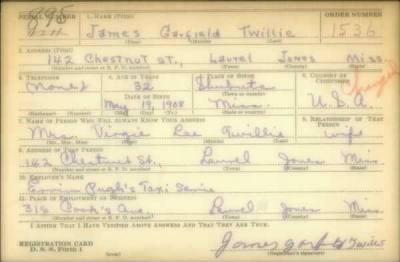 SERIAL NUMBER 1. NAME (Print) ORDER NUMBER
895 James Garfield Twillie 1536
(First) (Middle) (Last)
2. ADDRESS (Print)
142 Chestnut St., Laurel Jones Miss.
(Number and street or R. F. D. number) (Town) (County) (State)
3. TELEPHONE 4. AGE IN YEARS 5. PLACE OF BIRTH 6. COUNTRY OF CITIZENSHIP
None 32 Shubuta
DATE OF BIRTH (Town or county)
May 19, 1908 Miss. U.S.A.
(Exchange) (Number) (Mo.) (Day) (Yr.) (State or country)
7. NAME OF PERSON WHO WILL ALWAYS KNOW YOUR ADDRESS 8. RELATIONSHIP OF THAT PERSON
Mrs. Virgie Lee Twillie wife
(Mr., Mrs., Miss) (First) (Middle) (Last)
9. ADDRESS OF THAT PERSON
142 Chestnut St., Laurel Jones Miss.
(Number and street or R. F. D. number) (Town) (County) (State)
10. EMPLOYER'S NAME
Pugh's Taxi Service
11. PLACE OF EMPLOYMENT OR BUSINESS
318 Cook's Ave. Laurel Jones Miss.
(Number and street or R. F. D. number) (Town) (County) (State)
I AFFIRM THAT I HAVE VERIFIED ABOVE ANSWERS AND THAT THEY ARE TRUE.
REGISTRATION CARD
D. S. S. Form 1 (over) James Garfield Twillie
(Registrant's signature)